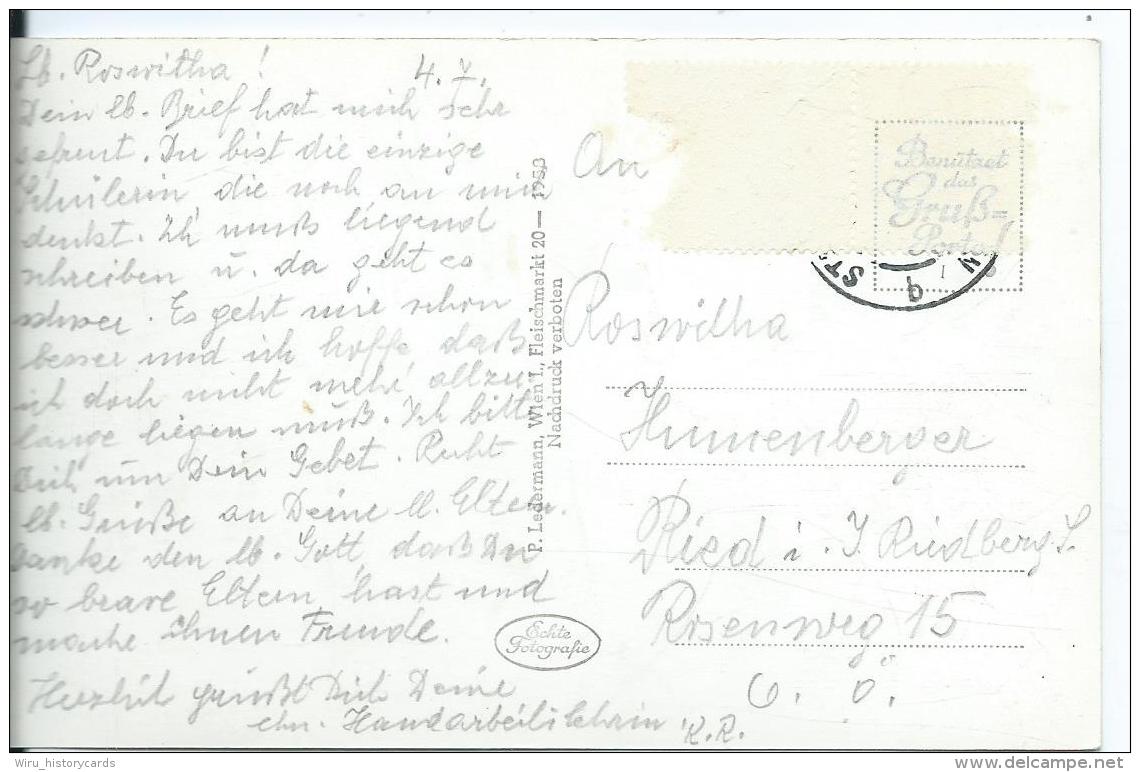 Lb. Roswitha! 4. V.
Dein lb. Brief hat mich sehr
gefreut. Du bist die einzige
Schülerin die noch an mich
denkt. Ich muß liegend
schreiben u. da geht es
schwer. Es geht mir schon
besser und ich hoffe daß
ich doch nicht mehr allzu
lange liegen muß. Ich bitte
Dich um Dein Gebet. Recht
lb. Grüße an Deine ll. Eltern.
Danke den lb. Gott, daß Du
so brave Eltern hast und
mache ihnen Freude.
Herzlich grüßt Dich Deine
ehm. Handarbeitslehrin K.R.
P. Ledermann, Wien I., Fleischmarkt 20 — 1953
Nachdruck verboten
Echte
Fotografie
An
Benützet
das
Gruß=
Porto!
Roswitha
Humenberger
Ried i. I. Riedberg S.
Rosenweg 15
O. Ö.
Wiru_historycards